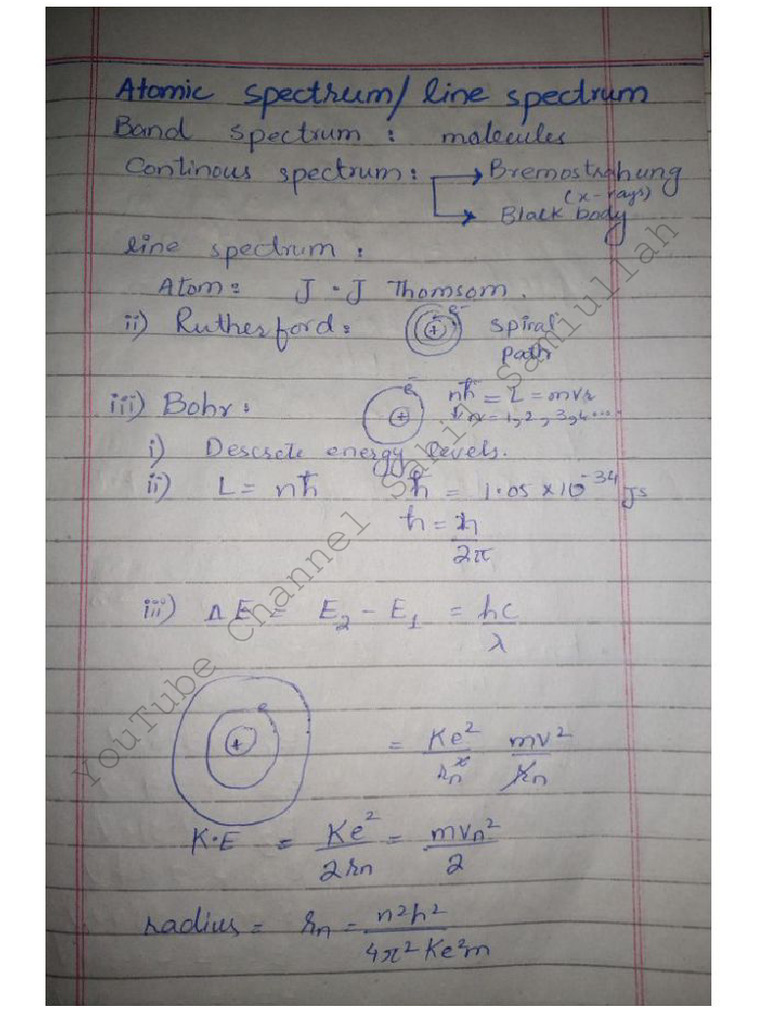 Atomic spectrum/ line spectrum
Band spectrum : molecules
Continous spectrum : → Bremostrahung
(x-rays)
→ Black body
line spectrum :
Atom : J.J Thomsom.
ii) Rutherford : + e⁻ spiral
path
iii) Bohr : + e⁻ nħ = L = mvr
n = 1, 2, 3, 4....
i) Descrete energy levels.
ii) L = nħ ħ = 1.05 × 10⁻³⁴ Js
ħ = h/2π
iii) ΔE = E₂ - E₁ = hc/λ
+ e = Ke²/rₙ² mv²/rₙ
K.E = Ke²/2rₙ = mvₙ²/2
radius = rₙ = n²h²/4π²Ke²m
YouTube Channel Sakin Samiullah